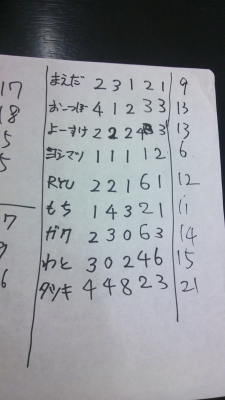 17 まえだ 2 3 1 2 1 9
18 おーつぼ 4 1 2 3 3 13
5 よーすけ 2 2 2 4 3 13
5 ヨシマツ 1 1 1 1 2 6
RYU 2 2 1 6 1 12
7 もち 1 4 3 2 1 11
ガク 2 3 0 6 3 14
9 わと 3 0 2 4 6 15
6 タツキ 4 4 8 2 3 21